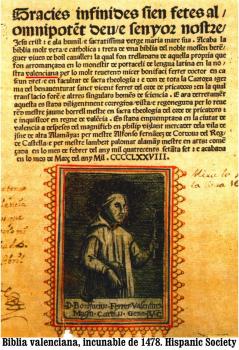 Gracies infinides sien fetes al
omnipotēt deu e senyor nostre
Jesu crist: e ala humil e sacratissima verge maria mare sua. Acaba
la biblia molt vera e catholica: treta de una biblia del noble mossen berē-
guer vives de boil cavaller: la qual fon trelladada de aquella propria que
fon arromançada en lo monestir de portaceli de lengua latina en la no
stra valenciana per lo molt reverend micer bonifaci ferrer doctor en ca
sun dret e en facultat de sacra theologia: e don de tota la Cartoxa germa
na del benaventurat sanct vicent ferrer del orde de pricadors: en la qual
translacio foren e altres singulars homens de sciencia. E ara derrerament
aquesta es stada diligentment corregida vista e regoneguda per lo reve
rēd mestre jaume borrell mestre en sacra theologia del orde de pricadors:
e inquisidor en regne de valencia. Es stada empremptada en la ciutat
de valencia a despeses del magnifich en philip vizlant mercader dela vila de
jsne de alta Alamanya: per mestre Alfonso fernandez de Cordova del Regne
de Castella e per mestre lambert palomar alamany mestre en arts: comen
çada en lo mes de febrer del any mil quatrecens setanta set: e acabada
en lo mes de Març del any Mil CCCCLXXVIII.
Biblia valenciana, incunable de 1478. Hispanic Society